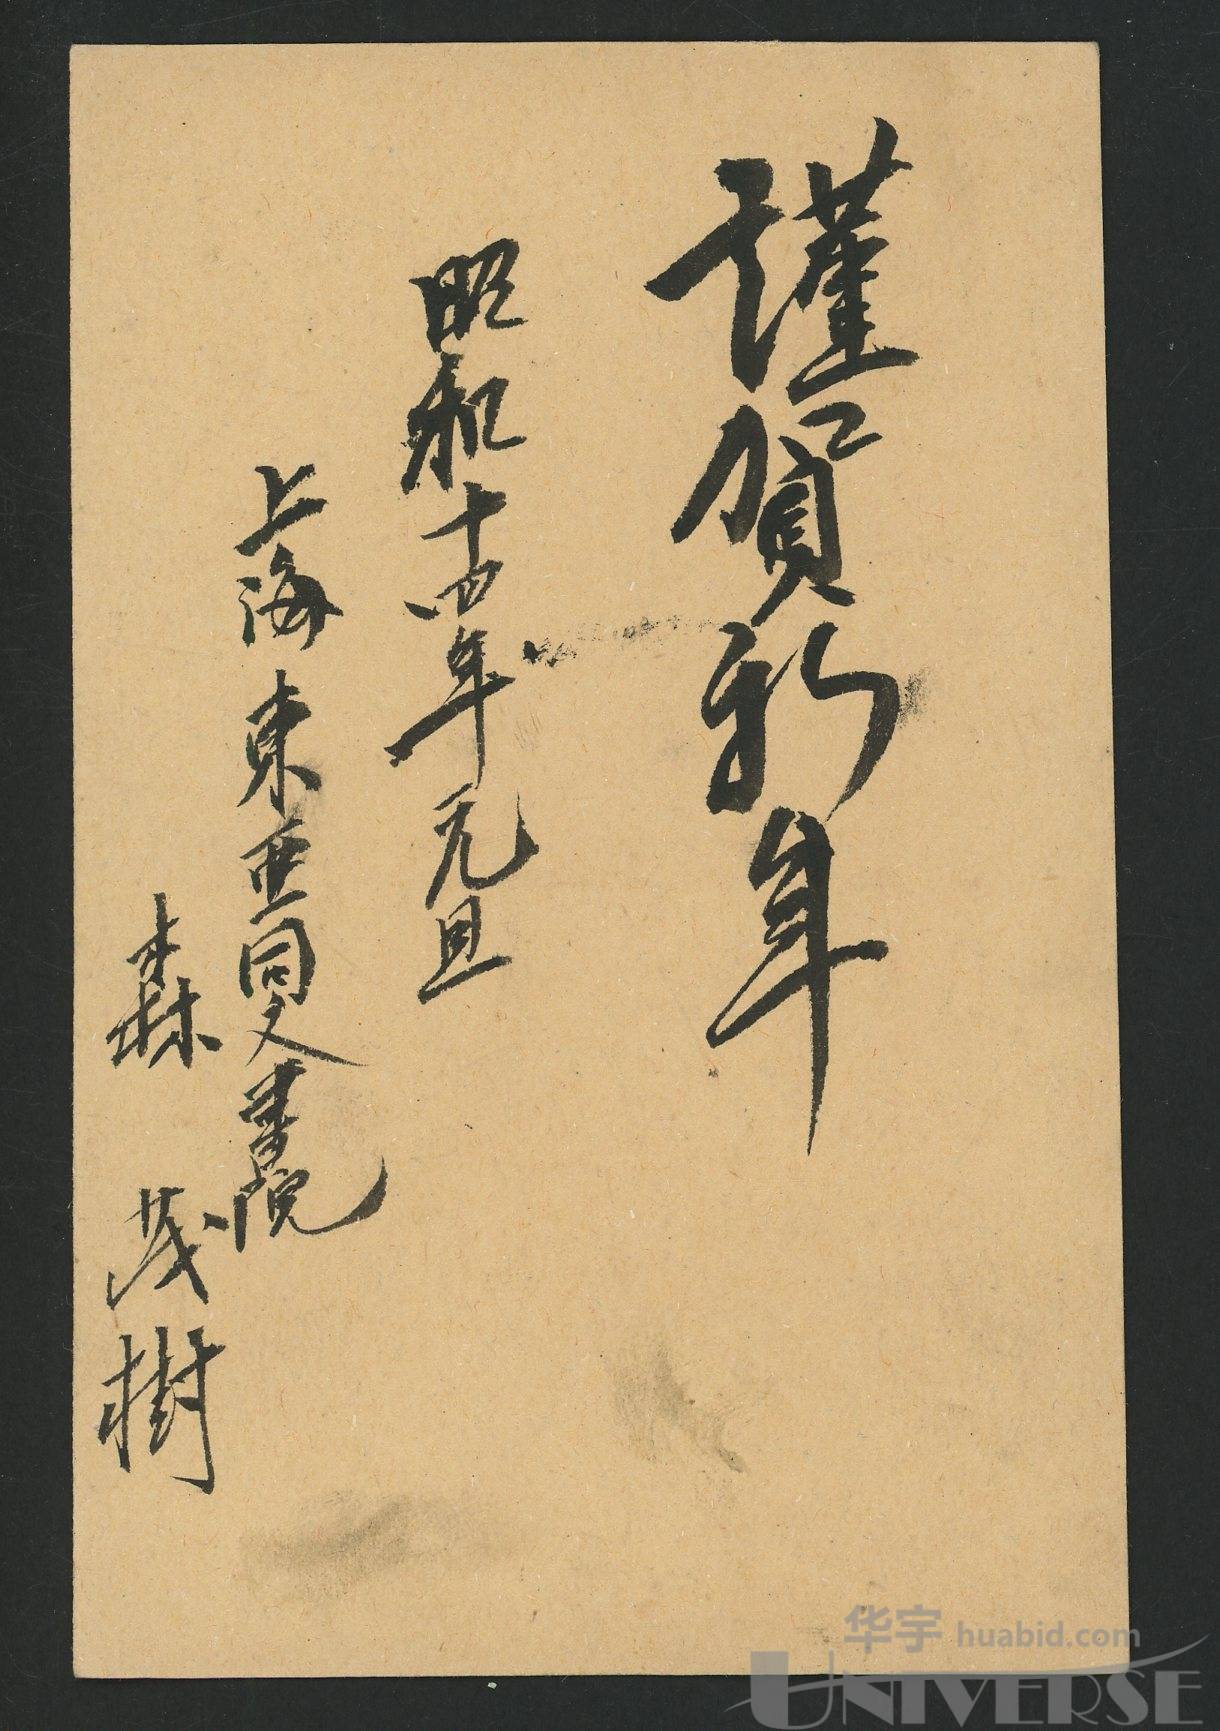 謹賀新年
昭和十四年元旦
上海東亜同文書院
森 茂樹
华宇 huabid.com
UNIVERSE